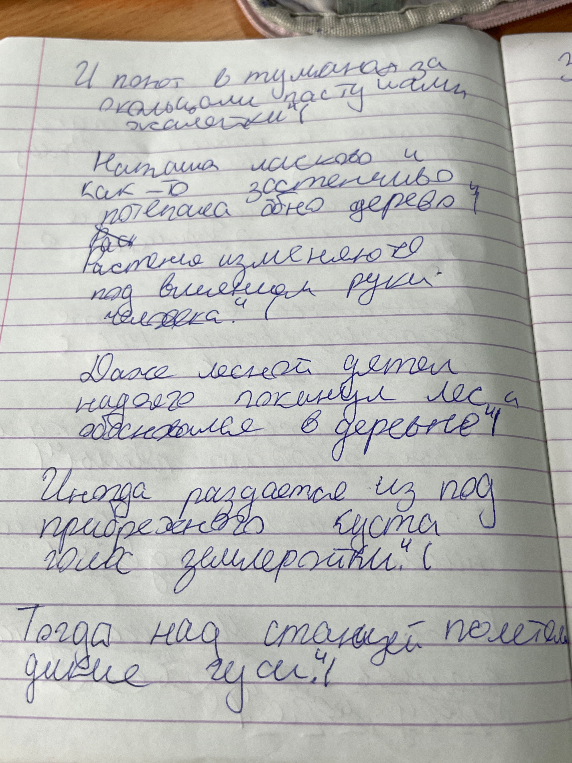 И поют в туманах за
околицами пастушами
жалейки"(
Наташа ласково и
как-ю застенчиво
потепала одно дерево"(
Рас
Растения изменяются
под влиянием руки
человека."(
Даже лесной дятел
надолго покинул лес и
обосновался в деревне"(
Иногда раздается из под
прибрежного куста
голос землеройки."(
Тогда над станцей полетели
дикие гуси."(